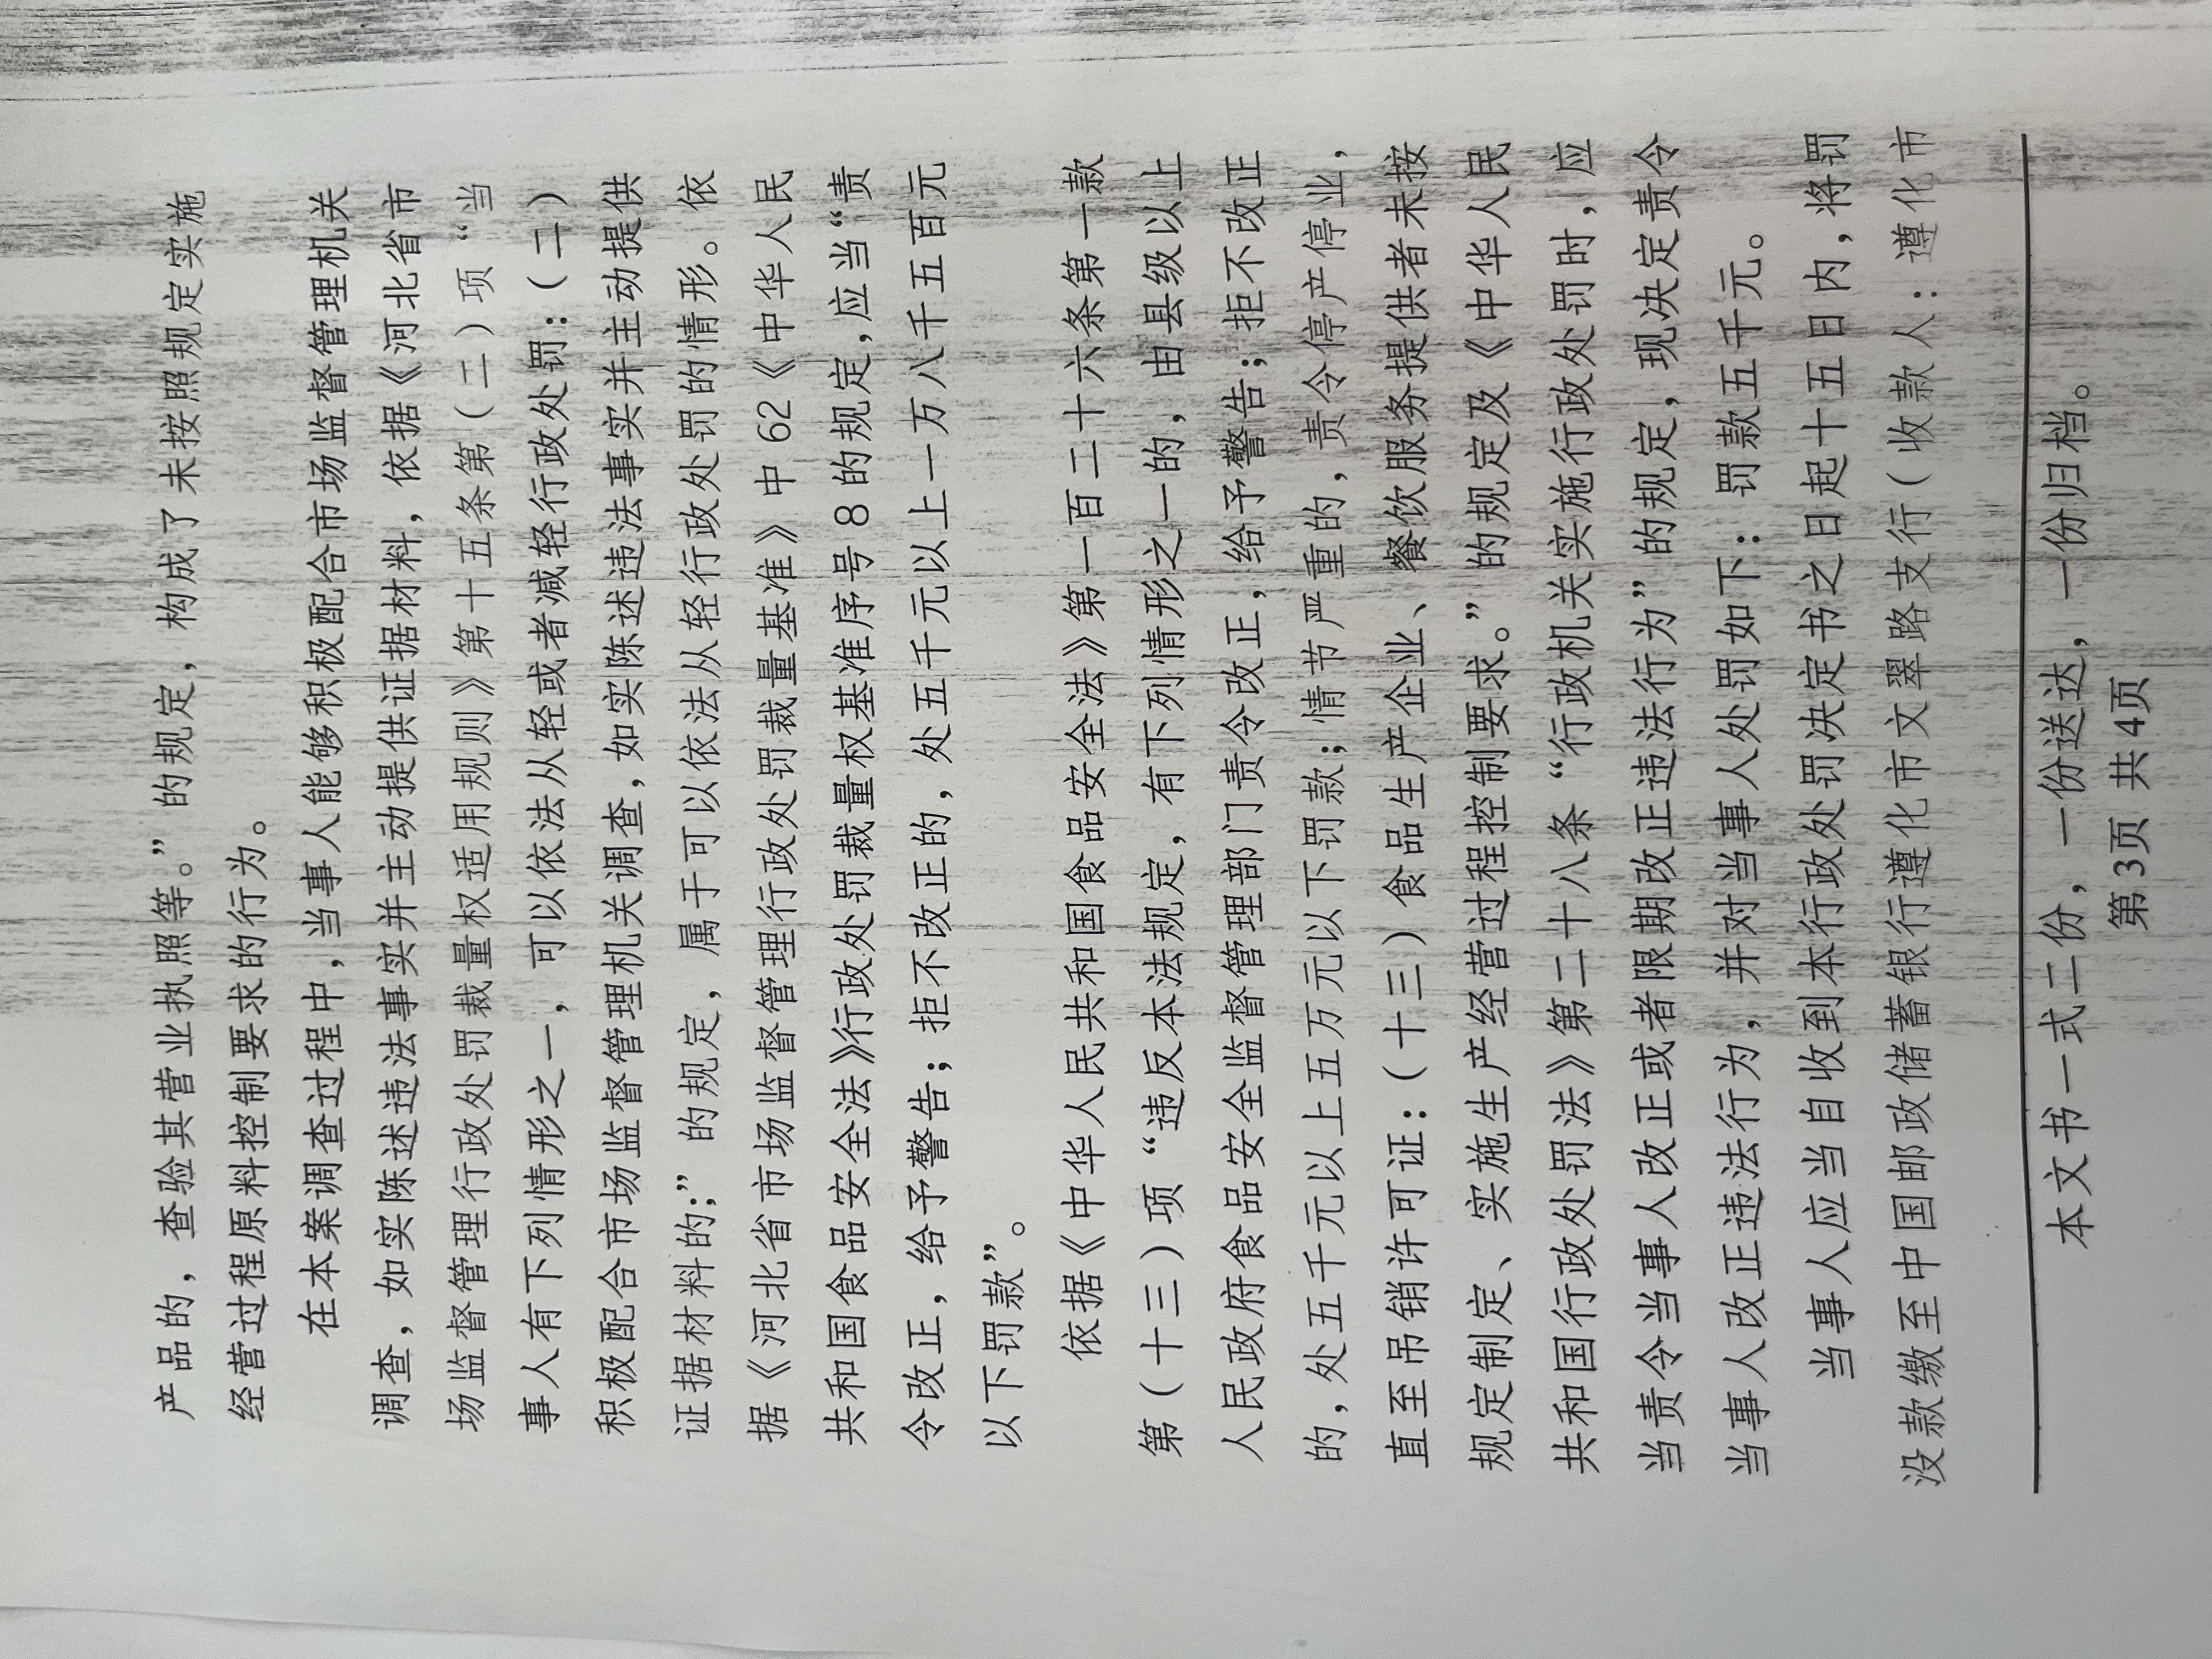 产品的，查验其营业执照等。”的规定，构成了未按照规定实施
经营过程原料控制要求的行为。
在本案调查过程中，当事人能够积极配合市场监督管理机关
调查，如实陈述违法事实并主动提供证据材料，依据《河北省市
场监督管理行政处罚裁量权适用规则》第十五条第（二）项“当
事人有下列情形之一，可以依法从轻或者减轻行政处罚：（二）
积极配合市场监督管理机关调查，如实陈述违法事实并主动提供
证据材料的；”的规定，属于可以依法从轻行政处罚的情形。依
据《河北省市场监督管理行政处罚裁量基准》中62《中华人民
共和国食品安全法》行政处罚裁量权基准序号8的规定，应当“责
令改正，给予警告；拒不改正的，处五千元以上一万八千五百元
以下罚款”。
依据《中华人民共和国食品安全法》第一百二十六条第一款
第（十三）项“违反本法规定，有下列情形之一的，由县级以上
人民政府食品安全监督管理部门责令改正，给予警告；拒不改正
的，处五千元以上五万元以下罚款；情节严重的，责令停产停业，
直至吊销许可证：（十三）食品生产企业、餐饮服务提供者未按
规定制定、实施生产经营过程控制要求。”的规定及《中华人民
共和国行政处罚法》第二十八条“行政机关实施行政处罚时，应
当责令当事人改正或者限期改正违法行为”的规定，现决定责令
当事人改正违法行为，并对当事人处罚如下：罚款五千元。
当事人应当自收到本行政处罚决定书之日起十五日内，将罚
没款缴至中国邮政储蓄银行遵化市文翠路支行（收款人：遵化市
本文书一式二份，一份送达，一份归档。
第3页 共4页